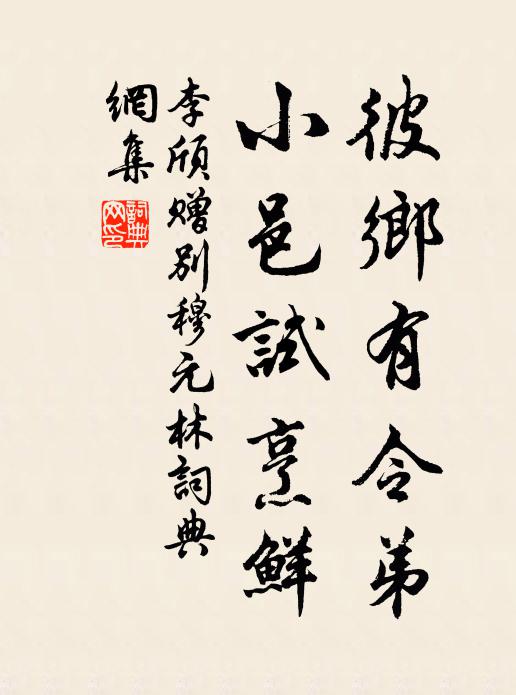 彼鄉有令弟
小邑試烹鮮
李頎贈別穆元林詞典
網集
詞典
网印